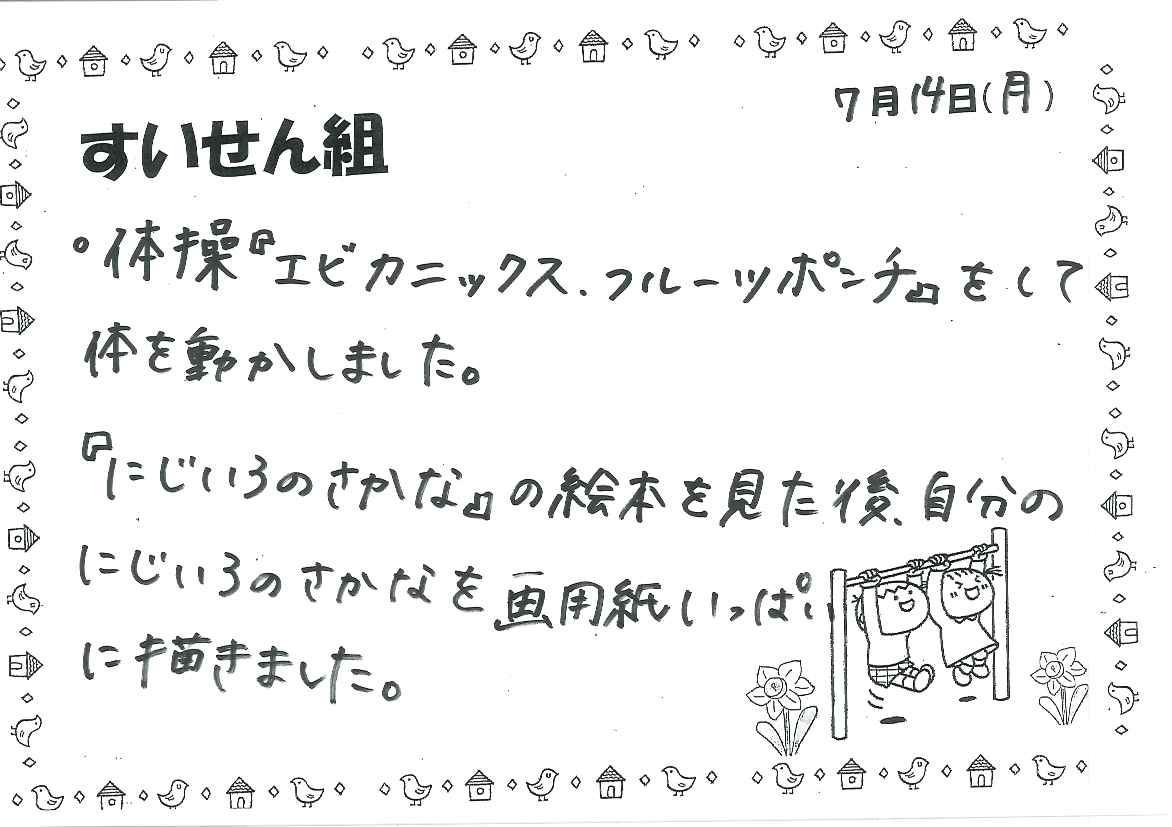 7月14日(月)
すいせん組
。体操『エビカニックス、フルーツポンチ』をして
体を動かしました。
『にじいろのさかな』の絵本を見た後、自分の
にじいろのさかなを画用紙いっぱい
に描きました。